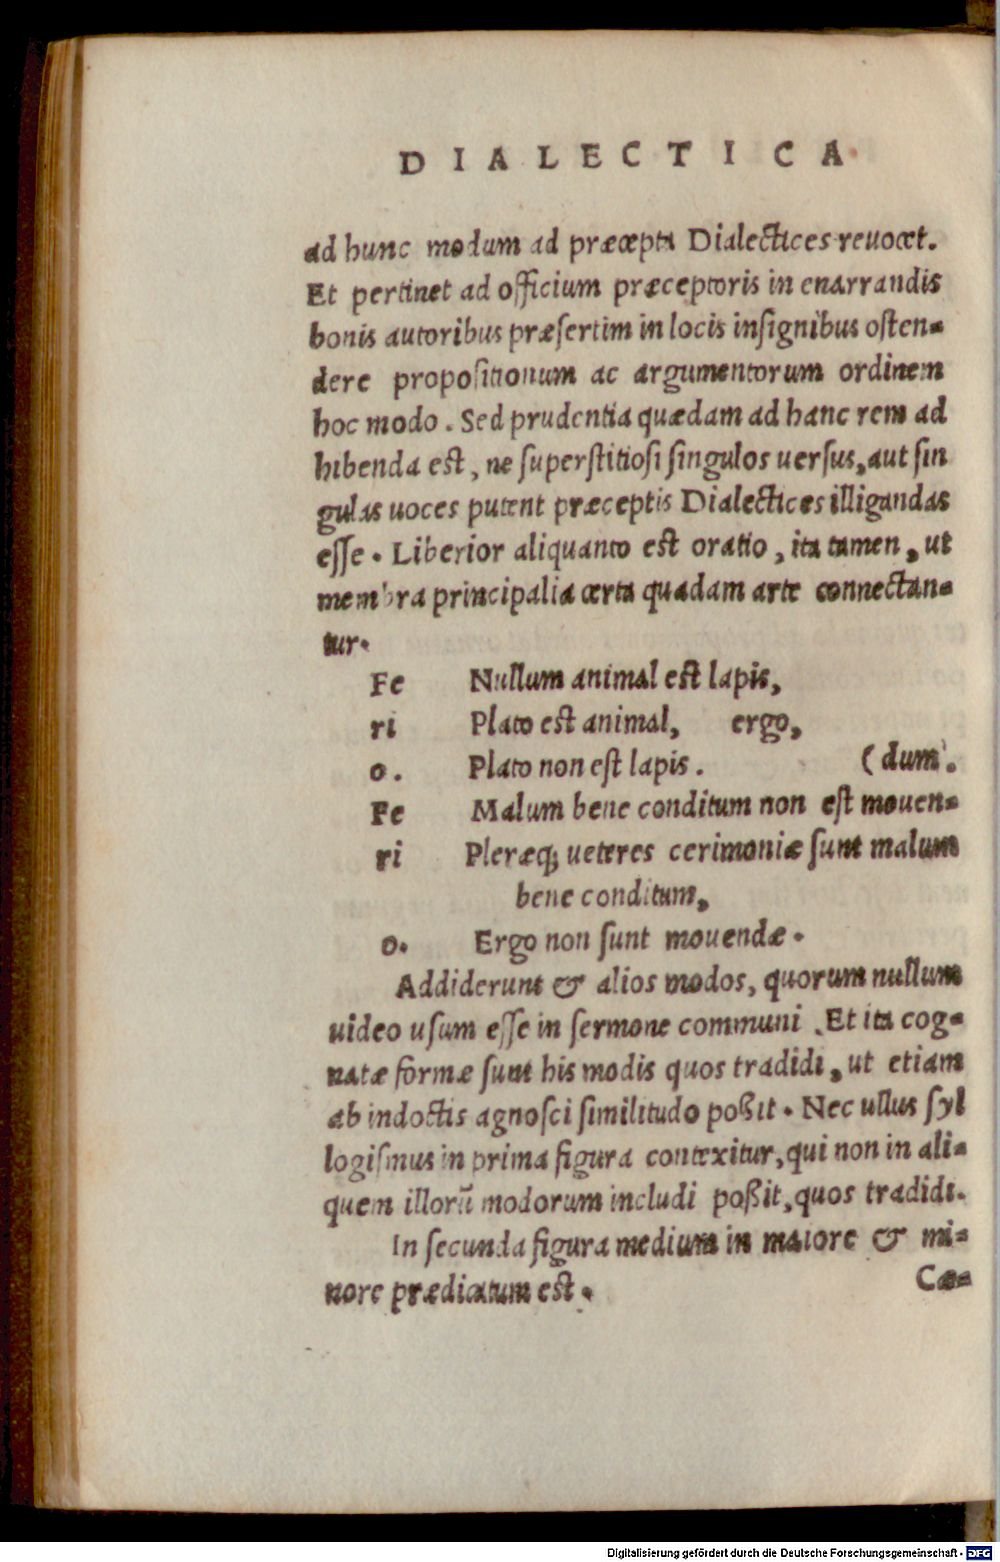 DIALECTICA
ad hunc modum ad præcepta Dialectices reuocet.
Et pertinet ad officium præceptoris in enarrandis
bonis autoribus præſertim in locis inſignibus oſten=
dere propoſitionum ac argumentorum ordinem
hoc modo. Sed prudentia quædam ad hanc rem ad
hibenda est, ne ſuperſtitioſi ſingulos uerſus, aut ſin
gulas uoces putent præceptis Dialectices illigandas
eſſe. Liberior aliquanto est oratio, ita tamen, ut
membra principalia certa quadam arte connectan=
tur.
Fe Nullum animal est lapis,
ri Plato est animal, ergo,
o. Plato non eſt lapis. (dum.
Fe Malum bene conditum non eſt mouen=
ri Pleræq; ueteres cerimoniæ ſunt malum
bene conditum,
o. Ergo non ſunt mouendæ.
Addiderunt & alios modos, quorum nullum
uideo uſum eſſe in ſermone communi. Et ita cog=
natæ formæ ſunt his modis quos tradidi, ut etiam
ab indoctis agnoſci ſimilitudo poßit. Nec ullus ſyl
logiſmus in prima figura contexitur, qui non in ali=
quem illorū modorum includi poßit, quos tradidi.
In ſecunda figura medium in maiore & mi=
nore prædicatum est.
Cæ=
Digitalisierung gefördert durch die Deutsche Forschungsgemeinschaft - DFG